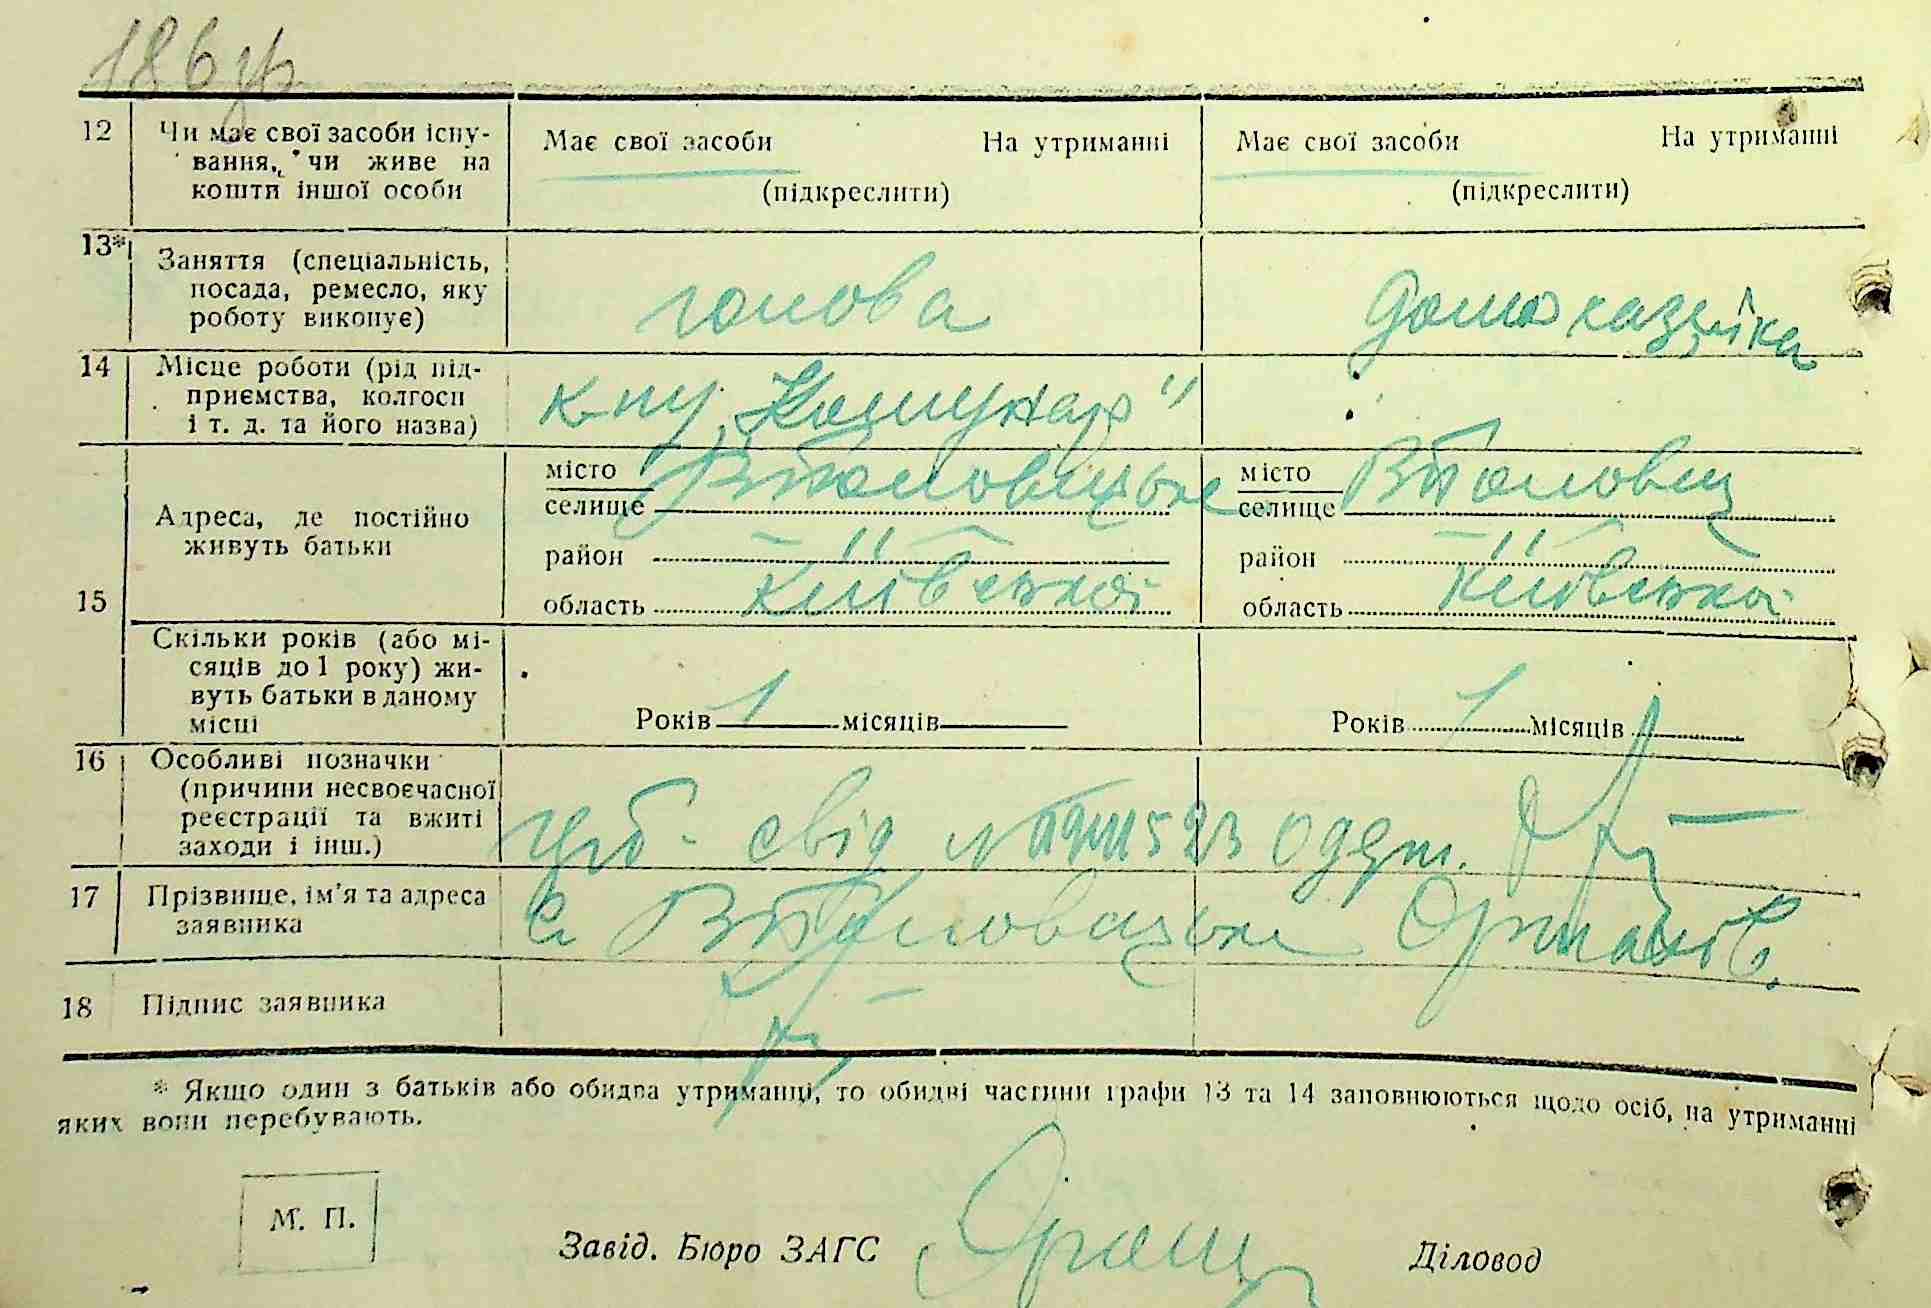 186 зр
12 Чи має свої засоби існу-
вання, чи живе на
кошти іншої особи
Має свої засоби На утриманні
(підкреслити)
Має свої засоби На утриманні
(підкреслити)
13* Заняття (спеціальність,
посада, ремесло, яку
роботу виконує)
голова
домохазяйка
14 Місце роботи (рід під-
приємства, колгосп
і т. д. та його назва)
к-пу „Комунар"
15 Адреса, де постійно
живуть батьки
місто
селище
район "
область Київської
місто
селище
район "
область Київської
Скільки років (або мі-
сяців до 1 року) жи-
вуть батьки в даному
місці
Років 1 місяців
Років 1 місяців
16 Особливі позначки
(причини несвоєчасної
реєстрації та вжиті
заходи і інш.)
свід № одерж.
17 Прізвище, ім'я та адреса
заявника
с.
18 Підпис заявника
* Якщо один з батьків або обидва утриманці, то обидві частини графи 13 та 14 заповнюються щодо осіб, на утриманні
яких вони перебувають.
М. П.
Завід. Бюро ЗАГС Діловод